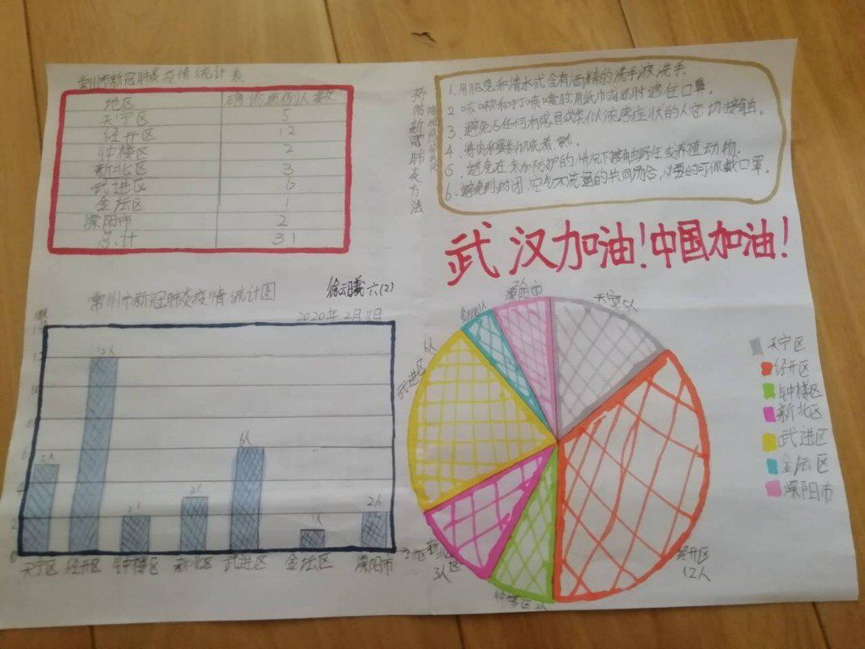 常州市新冠肺炎疫情统计表
地区 确诊病例人数
天宁区 5
经开区 12
钟楼区 2
新北区 3
武进区 6
金坛区 1
溧阳市 2
总计 31
预防新冠肺炎方法
1.用肥皂和清水或含有酒精的洗手液洗手.
2.咳嗽和打喷嚏时用纸巾或
口鼻.
3.避免与任何有感冒或类似流感症状的人密切接触.
4.将肉和蛋彻底煮熟.
5.避免在未加防护的情况下接触野生或养殖动物.
6.避免到封闭、空气不流通的
场合,必要时可佩戴口罩.
武汉加油!中国加油!
常州市新冠肺炎疫情统计图
六(2)
2020年2月
12人
2人
6人
1人
2人
天宁区 经开区 钟楼区 新北区 武进区 金坛区 溧阳市
溧阳市
天宁
6人
武进区
新北区
3人
钟楼区 2人
经开区
12人
天宁区
经开区
钟楼区
新北区
武进区
金坛区
溧阳市